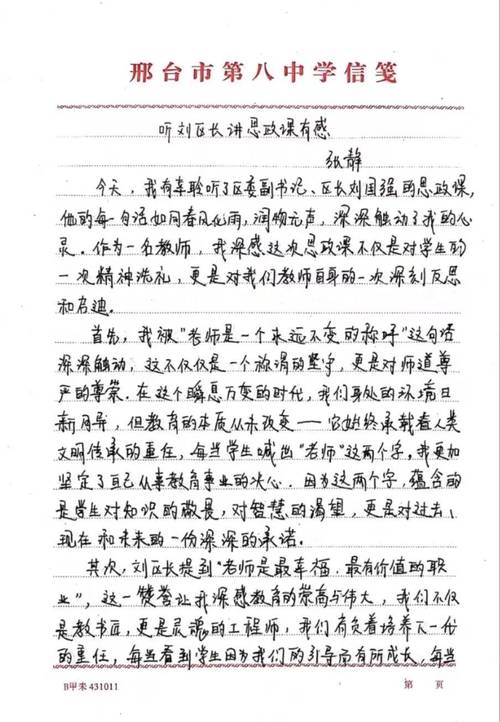 邢台市第八中学信笺
听刘区长讲思政课有感
张静
今天，我有幸聆听了区委副书记、区长刘国强的思政课，
他的每一句话如同春风化雨，润物无声，深深触动了我的心
灵。作为一名教师，我深感这次思政课不仅是对学生的
一次精神洗礼，更是对我们教师自身的一次深刻反思
和启迪.
首先，我被"老师是一个永远不变的称呼"这句话
深深触动，这不仅仅是一个称谓的坚守，更是对师道尊
严的尊崇.在这个瞬息万变的时代，我们身处的环境日
新月异，但教育的本质从未改变——它始终承载着人类
文明传承的重任，每当学生喊出"老师"这两个字，我更加
坚定了自己从事教育事业的决心.因为这两个字，蕴含的
是学生对知识的敬畏，对智慧的渴望，更是对过去、
现在和未来的一份深深的承诺.
其次，刘区长提到"老师是最幸福、最有价值的职
业"，这一赞誉让我深感教育的崇高与伟大，我们不仅
是教书匠，更是灵魂的工程师，我们肩负着培养下一代
的重任，每当看到学生因为我们的引导而有所成长，每当
B甲未431011
第 页